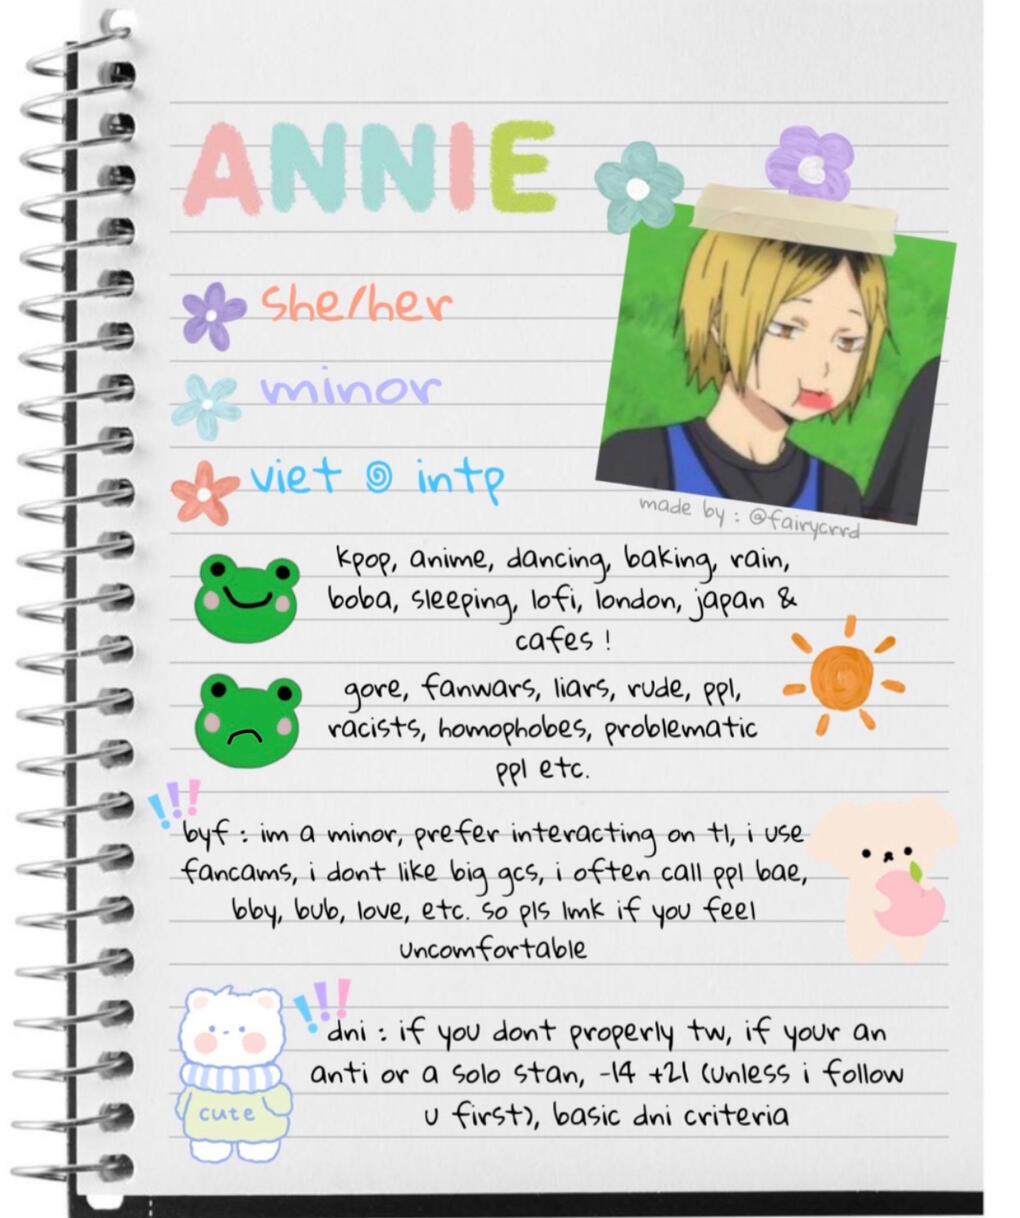 ANNIE
she/her
minor
viet ꩜ intp
made by : @fairycrrd
kpop, anime, dancing, baking, rain,
boba, sleeping, lofi, london, japan &
cafes !
gore, fanwars, liars, rude, ppl,
racists, homophobes, problematic
ppl etc.
!!!
byf : im a minor, prefer interacting on tl, i use
fancams, i dont like big gcs, i often call ppl bae,
bby, bub, love, etc. so pls lmk if you feel
uncomfortable
!!!
dni : if you dont properly tw, if your an
anti or a solo stan, -14 +21 (unless i follow
u first), basic dni criteria
cute